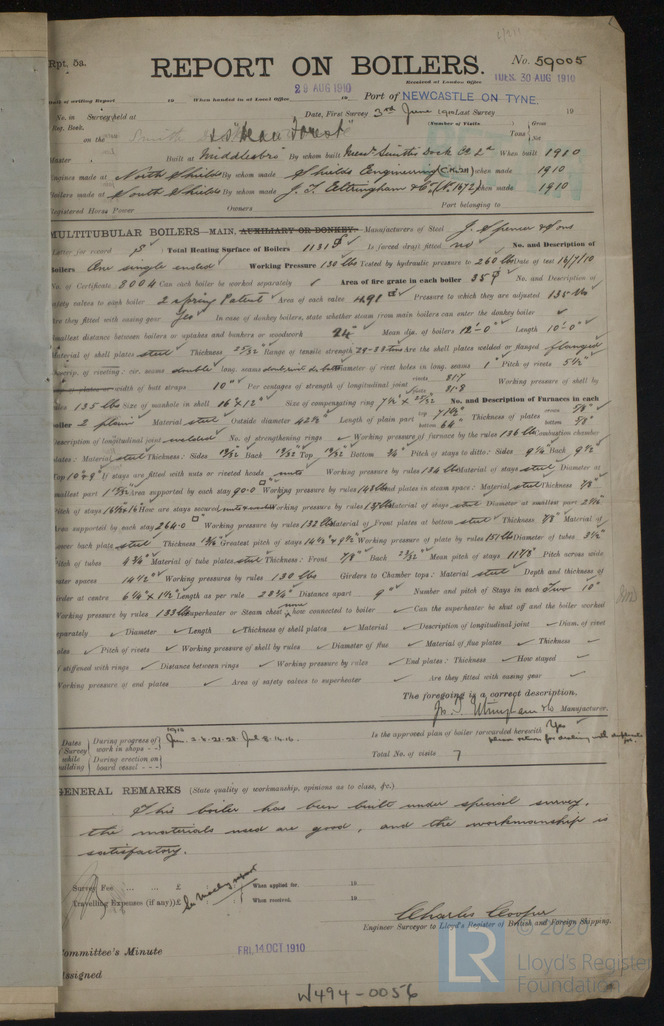 Rpt. 5a.
REPORT ON BOILERS.
No. 59005
Received at London Office TUES. 30 AUG 1910
Date of writing Report 19 When handed in at Local Office 29 AUG 1910 19 Port of NEWCASTLE ON TYNE.
No. in Survey held at Date, First Survey 3rd June 19 Last Survey 19
Reg. Book.
(Number of Visits
Gross
on the Tons
Net
Master Built at Middlesbro' By whom built Messrs Smiths Dock Co Ld When built 1910
Engines made at North Shields By whom made Shields Engineering when made 1910
Boilers made at South Shields By whom made J. T. Eltringham & Co (No 1672) when made 1910
Registered Horse Power Owners Port belonging to
MULTITUBULAR BOILERS—MAIN, AUXILIARY OR DONKEY.— Manufacturers of Steel J. Spencer & Sons
Letter for record S Total Heating Surface of Boilers 1131 Is forced draft fitted no No. and Description of
Boilers One single ended Working Pressure 130 lbs Tested by hydraulic pressure to 260 lbs Date of test 16/7/10
No. of Certificate 8004 Can each boiler be worked separately Area of fire grate in each boiler 35 No. and Description of
safety valves to each boiler 2 spring Patent Area of each valve 4.91 Pressure to which they are adjusted 135 lbs
Are they fitted with easing gear Yes In case of donkey boilers, state whether steam from main boilers can enter the donkey boiler
Smallest distance between boilers or uptakes and bunkers or woodwork 24" Mean dia. of boilers 12'-0" Length 10'-0"
Material of shell plates steel Thickness 25/32" Range of tensile strength 29-33 tons Are the shell plates welded or flanged flanged
Descrip. of riveting: cir. seams double long. seams Diameter of rivet holes in long. seams 1" Pitch of rivets 5 1/2"
width of butt straps 10" Per centages of strength of longitudinal joint rivets 81.7 plate 81.8 Working pressure of shell by
rules 135 lbs Size of manhole in shell 16" x 12" Size of compensating ring 7 1/2" x 25/32" No. and Description of Furnaces in each
boiler 2 plain Material steel Outside diameter 42 1/2" Length of plain part top 71 1/2" bottom 64" Thickness of plates crown 5/8" bottom 5/8"
Description of longitudinal joint welded No. of strengthening rings Working pressure of furnace by the rules 136 lbs Combustion chamber
plates: Material steel Thickness: Sides 19/32" Back 19/32" Top 19/32" Bottom 3/4" Pitch of stays to ditto: Sides 9 1/4" Back 9 1/2"
Top 10" x 9" If stays are fitted with nuts or riveted heads nuts Working pressure by rules 134 lbs Material of stays steel Diameter at
smallest part Area supported by each stay 90.0 Working pressure by rules 143 lbs End plates in steam space: Material steel Thickness 7/8"
Pitch of stays How are stays secured Working pressure by rules Material of stays steel Diameter at smallest part
Area supported by each stay 264.0 Working pressure by rules 132 lbs Material of Front plates at bottom steel Thickness 7/8" Material of
Lower back plate steel Thickness Greatest pitch of stays Working pressure of plate by rules 151 lbs Diameter of tubes 3 1/2"
Pitch of tubes 4 3/4" Material of tube plates steel Thickness: Front 7/8" Back 23/32" Mean pitch of stays 11 7/8" Pitch across wide
water spaces 14 1/2" Working pressures by rules 130 lbs Girders to Chamber tops: Material steel Depth and thickness of
girder at centre 6 1/4" x 1 3/4" Length as per rule 23 1/4" Distance apart 9" Number and pitch of Stays in each Two 10"
Working pressure by rules 133 lbs Superheater or Steam chest; how connected to boiler none Can the superheater be shut off and the boiler worked
separately Diameter Length Thickness of shell plates Material Description of longitudinal joint Diam. of rivet
holes Pitch of rivets Working pressure of shell by rules Diameter of flue Material of flue plates Thickness
If stiffened with rings Distance between rings Working pressure by rules End plates: Thickness How stayed
Working pressure of end plates Area of safety valves to superheater Are they fitted with easing gear
The foregoing is a correct description,
Jn. T. Eltringham & Co Manufacturer.
Dates of Survey while building
During progress of work in shops - - 1910 Jun. 3. 4. 21. 28. Jul. 8. 14. 16.
During erection on board vessel - - -
Is the approved plan of boiler forwarded herewith Yes
Total No. of visits 7
GENERAL REMARKS (State quality of workmanship, opinions as to class, &c.)
This boiler has been built under special survey,
the materials used are good, and the workmanship is
satisfactory.
Survey Fee ... ... £ When applied for, 19
Travelling Expenses (if any) £ When received, 19
See Machy report
Charles Cooper
Engineer Surveyor to Lloyd's Register of British and Foreign Shipping.
Committee's Minute FRI. 14 OCT 1910
Assigned
© 2020
LR
Lloyd's Register
Foundation
W494-0056